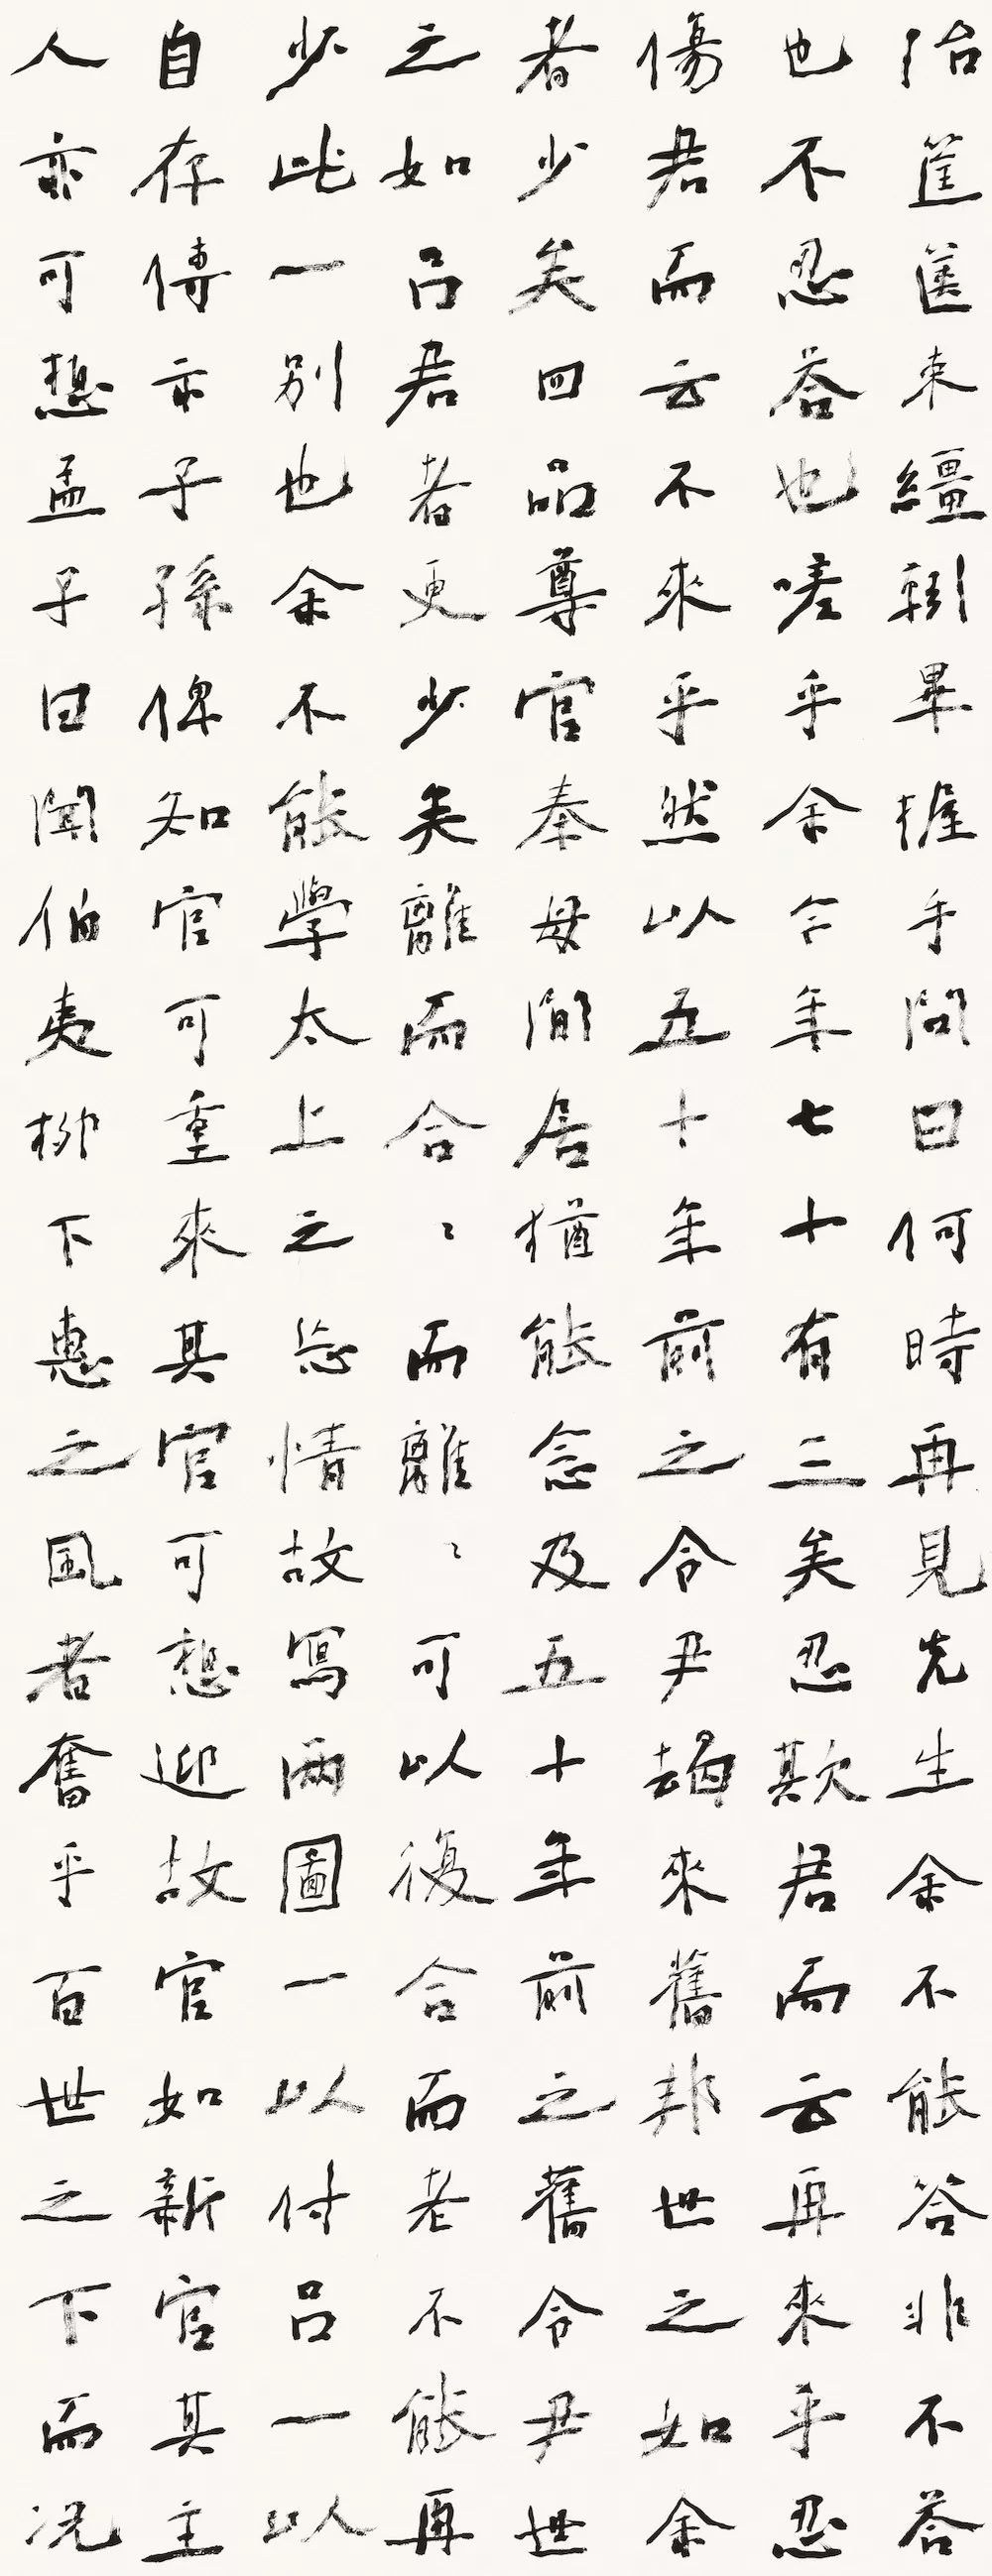 治筐篋束繮靷畢握手問曰何時再見先生余不能答非不答
也不忍答也嗟乎余今年七十有三矣忍欺君而云再來乎忍
傷君而云不來乎然以五十年前之令尹朅來舊邦世之如余
者少矣四品尊官奉母閒居猶能念及五十年前之舊令尹世
之如呂君者更少矣離而合〻而離〻可以復合而老不能再
少此一別也余不能學太上之忘情故寫兩圖一以付呂一以
自存傳示子孫俾知官可重來其官可想迎故官如新官其主
人亦可想孟子曰聞伯夷柳下惠之風者奮乎百世之下而况